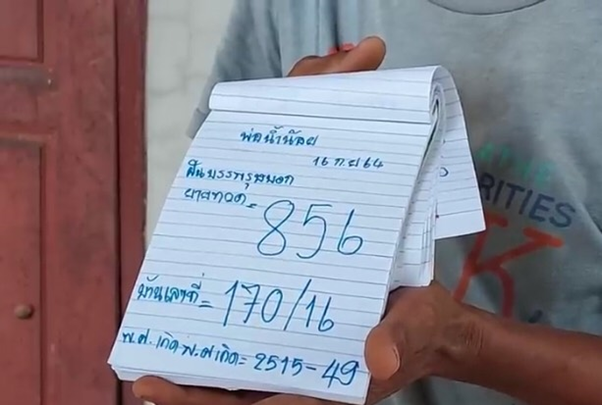 พ่อน้ำน้อย
16 ก.ย 64
ฝันบรรพรุษบอก
ยายทวด = 856
บ้านเลขที่ = 170/16
พ.ศ. เกิด พ.ศ เกิด = 2515 - 49
THE
RITIES
K